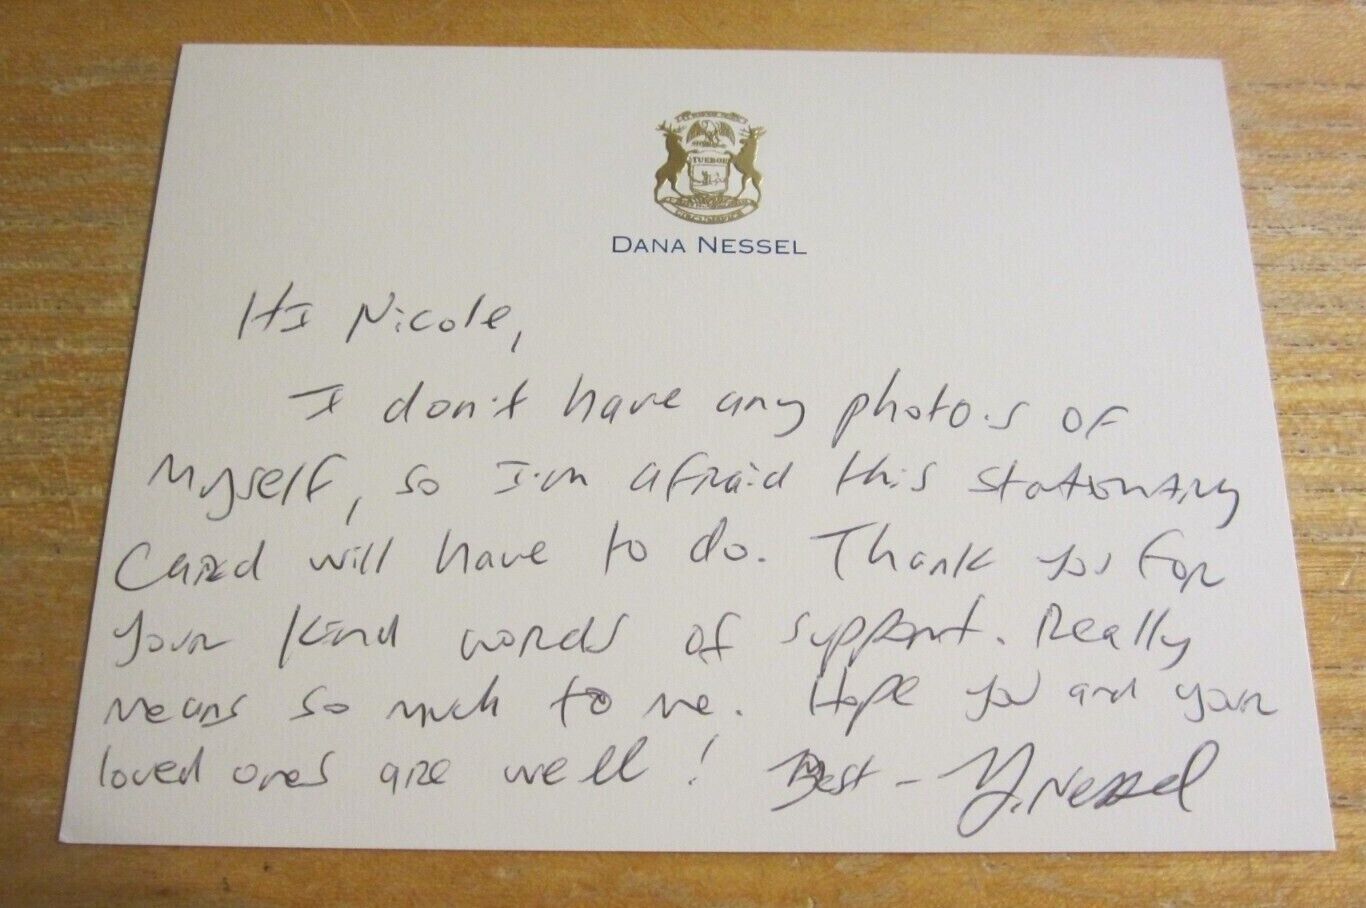 TUEBOR
DANA NESSEL
HI Nicole,
I don't have any photos of
myself, so I'm afraid this stationary
Card will have to do. Thank you for
your kind words of support. Really
means so much to me. Hope you and your
loved ones are well! Best - Nessel